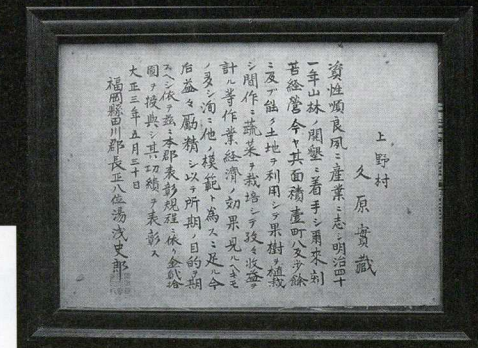 上野村
久原實藏
資性順良夙ニ産業ニ志シ明治四十
一年山林ノ開墾ニ着手シ爾來刻
苦経營今ヤ其面積壹町八反歩餘
ニ及ブ能ク土地ヲ利用シテ果樹ヲ植栽
シ間作ニ蔬菜ヲ栽培シテ孜々收益ヲ
計ル等作業経濟ノ効果見ルヘキモ
ノ多シ洵ニ他ノ模範ト為スニ足ル今
后益々勵精シ以テ所期ノ目的ヲ期
スヘシ依テ茲ニ本郡表彰規程ニ依リ金貳拾
圓ヲ授與シ其功績ヲ表彰ス
大正三年五月三十日
福岡縣田川郡長正八位湯浅史郎